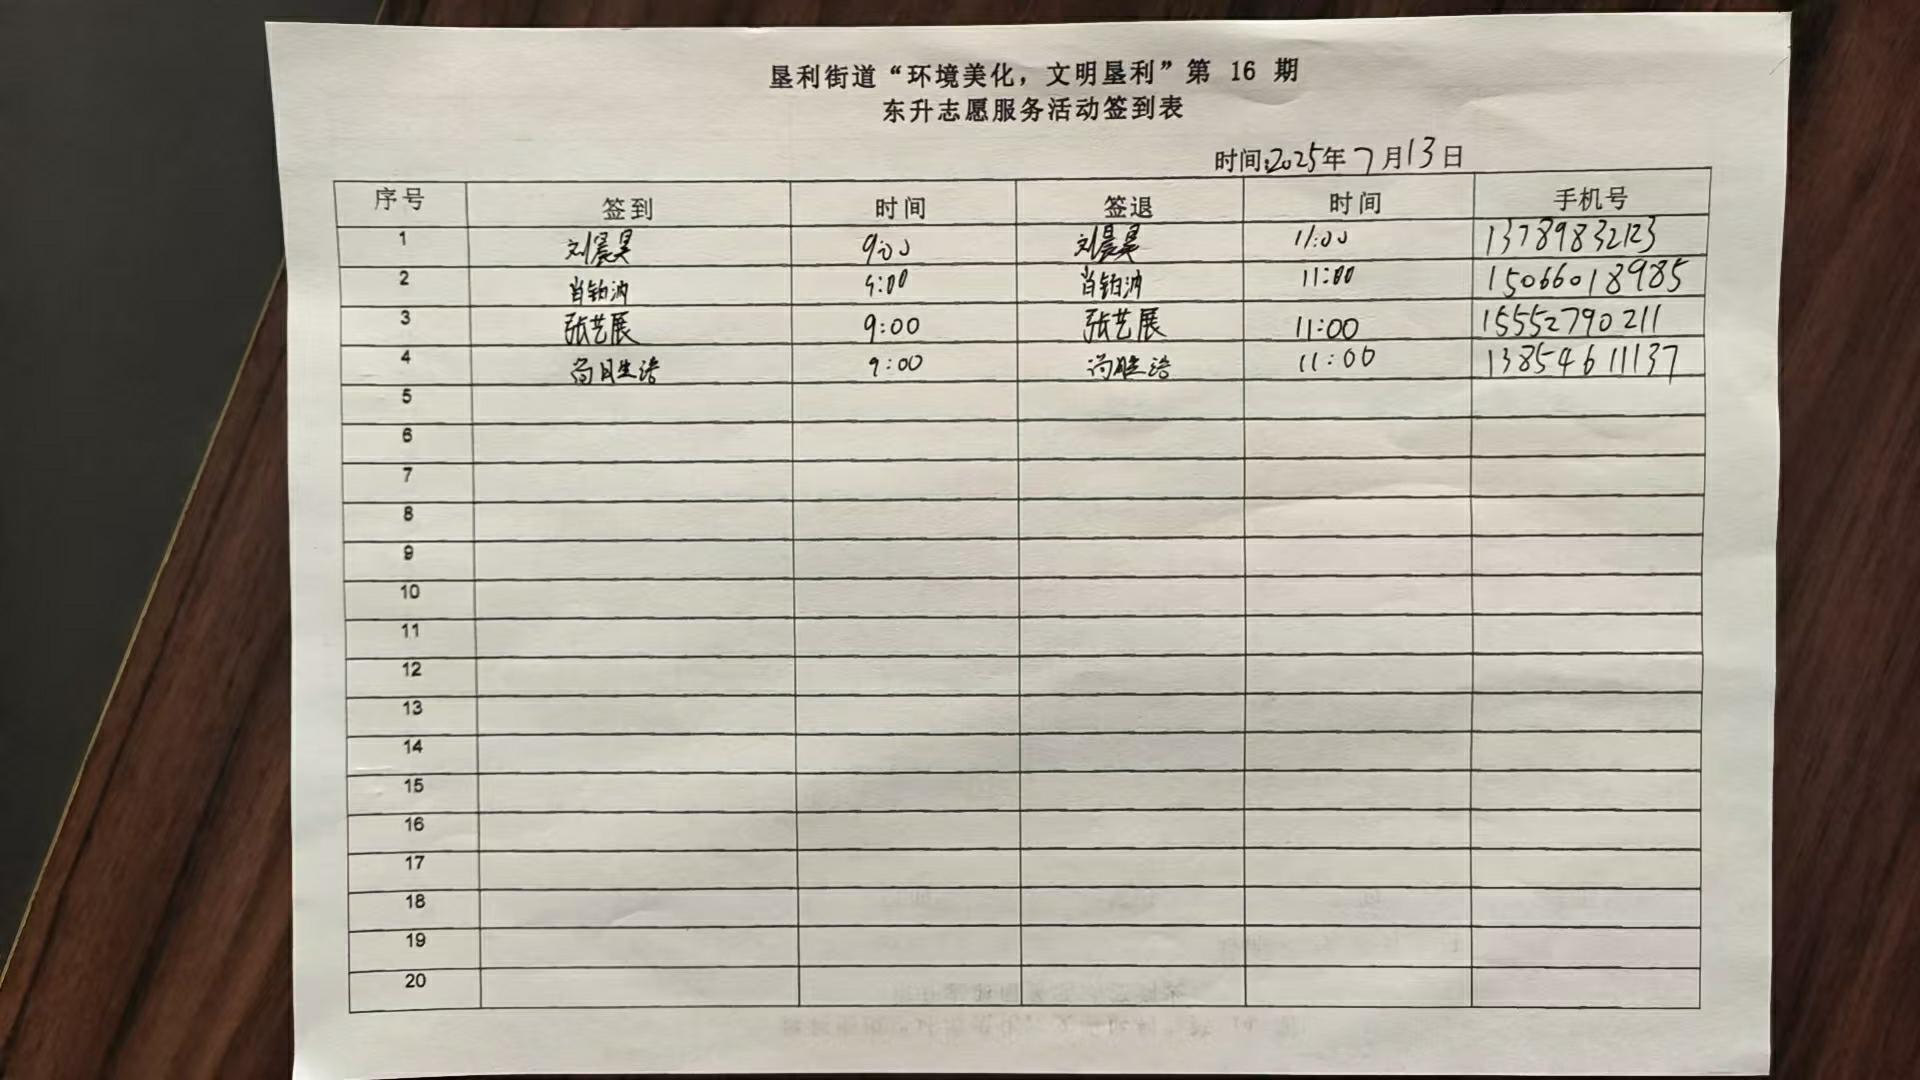 垦利街道“环境美化，文明垦利”第 16 期
东升志愿服务活动签到表
时间:2025年 7月13日
序号 签到 时间 签退 时间 手机号
1 刘晨昊 9:00 刘晨昊 11:00 13789832123
2 9:00 11:00 15066018985
3 张艺展 9:00 张艺展 11:00 15552790211
4 9:00 11:00 13854611137
5
6
7
8
9
10
11
12
13
14
15
16
17
18
19
20